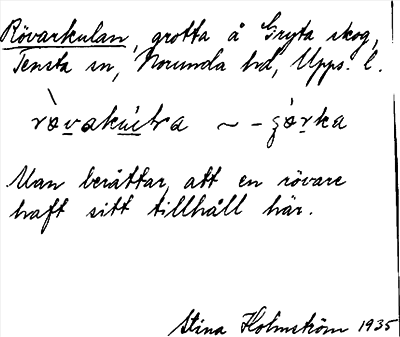 Rövarkulan, grotta å Gryta skog,
Tensta sn, Norunda hd, Upps. l.
Man berättar, att en rövare
haft sitt tillhåll här.
Stina Holmström 1935